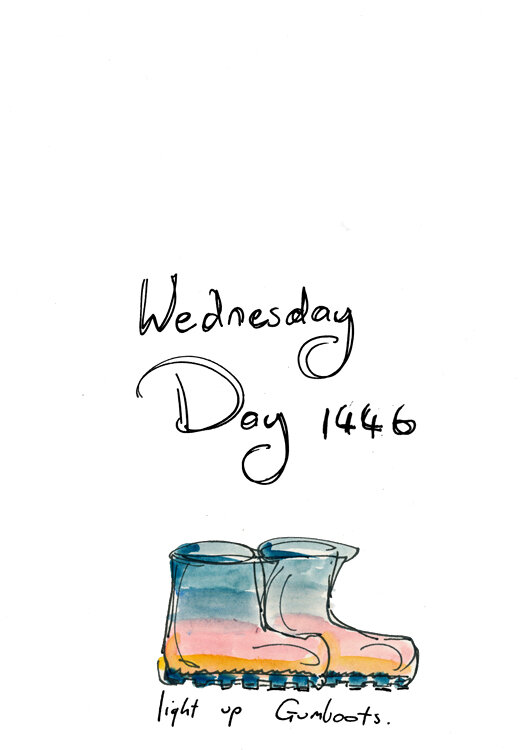 Wednesday
Day 1446
light up Gumboots.